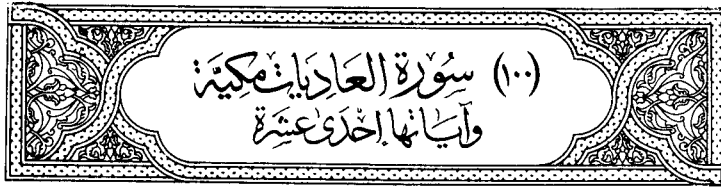 (١٠٠) سُورَة العَاديَات مَكيَّة
وَآيَاتهَا إحْدَى عَشَرَة